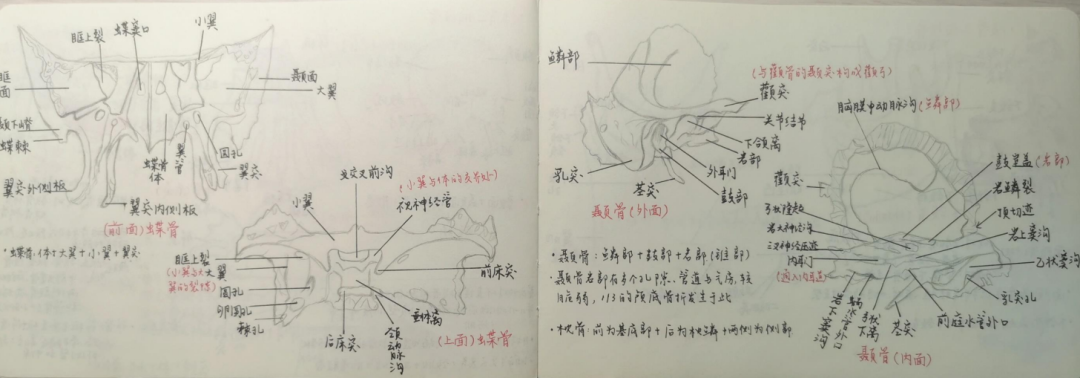 小翼
眶上裂
蝶窦口
眶
面
颞面
大翼
颞下嵴
蝶棘
蝶骨
体
翼
管
圆孔
翼突
翼突外侧板
翼突内侧板
(前面)蝶骨
·蝶骨:体+大翼+小翼+翼突
交叉前沟
(小翼与体的交界处)
视神经管
小翼
眶上裂
(小翼与大
翼的裂隙)
大翼
圆孔
卵圆孔
棘孔
前床突
垂体窝
后床突
颈动脉沟
(上面)蝶骨
鳞部
(与颧骨的颞突构成颧弓)
颧突
关节结节
下颌窝
岩部
外耳门
鼓部
乳突
茎突
颞骨(外面)
·颞骨:鳞部+鼓部+岩部(锥部)
·颞骨岩部有多个孔隙、管道与气房,较
脆弱,1/3的颅底骨折发生于此
·枕骨:前为基底部+后为枕鳞+两侧为侧部
脑膜中动脉沟(鳞部)
鼓室盖(岩部)
颧突
岩鳞裂
弓状隆起
顶切迹
岩大神经沟
岩上窦沟
三叉神经压迹
内耳门
(通入内耳道)
乙状窦沟
乳突孔
岩下窦沟
蜗水管外口
弓状下窝
茎突
前庭水管外口
颞骨(内面)